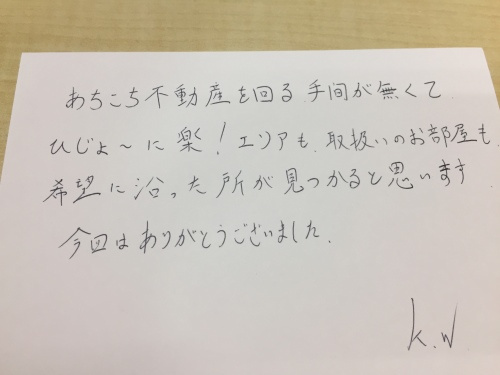 あちこち不動産を回る手間が無くて
ひじょ〜に楽！エリアも、取扱いのお部屋も、
希望に沿った所が見つかると思います
今回はありがとうございました。
K.W